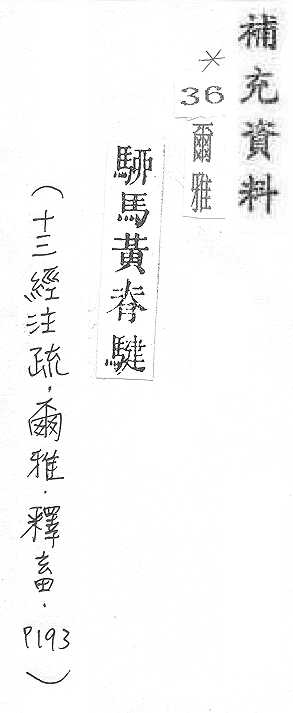 補充資料
＊36爾雅
駵馬黃脊騝
（十三經注疏．爾雅．釋畜．P193）